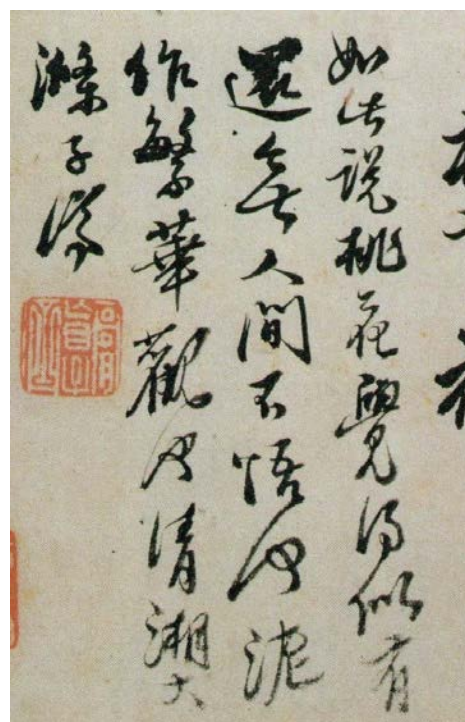 如此說桃花覺得似有
還無人間不悟何泥
作繁華觀也清湘大
滌子濟